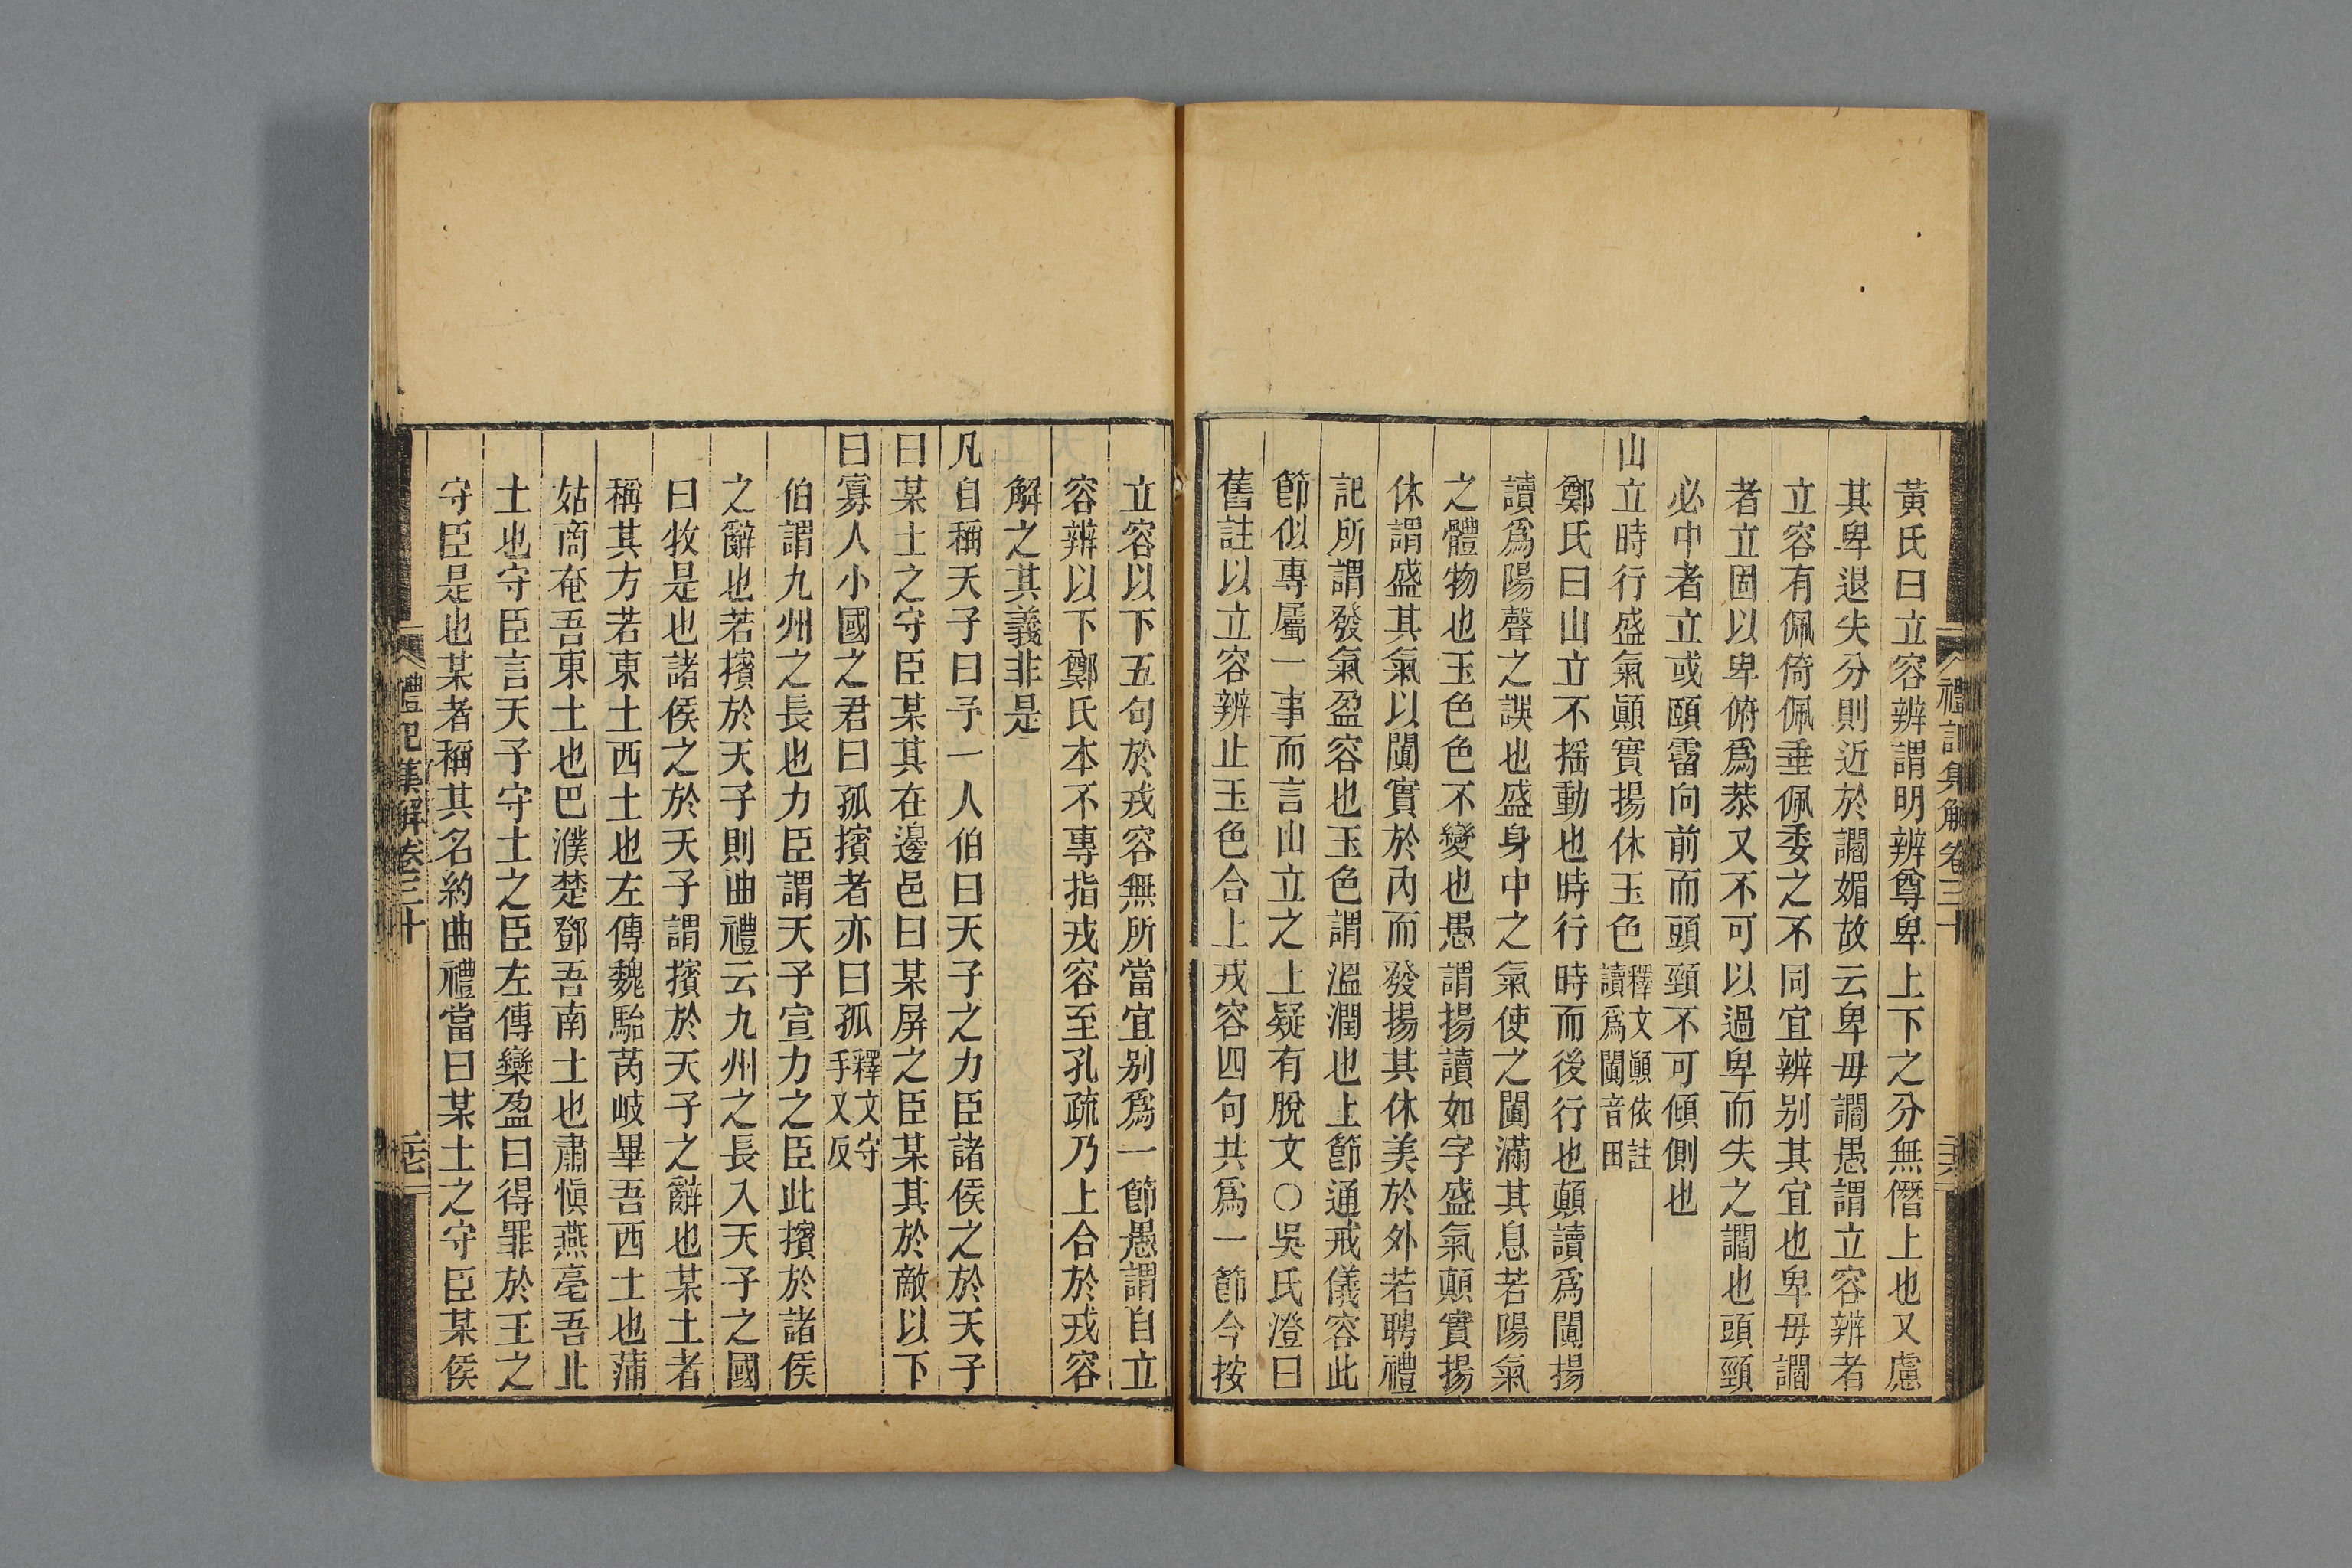 禮記集解卷三十
黃氏曰立容辨謂明辨尊卑上下之分無僭上也又慮
其卑退失分則近於讇媚故云卑毋讇愚謂立容辨者
立容有佩倚佩垂佩委之不同宜辨别其宜也卑毋讇
者立固以卑俯爲恭又不可以過卑而失之讇也頭頸
必中者立或頤霤向前而頭頸不可傾側也
山立時行盛氣顚實揚休玉色釋文顚依註讀爲闐音田
鄭氏曰山立不揺動也時行時而後行也顚讀爲闐揚
讀爲陽聲之誤也盛身中之氣使之闐滿其息若陽氣
之體物也玉色色不變也愚謂揚讀如字盛氣顚實揚
休謂盛其氣以闐實於内而發揚其休美於外若聘禮
記所謂發氣盈容也玉色謂溫潤也上節通戒儀容此
節似專屬一事而言山立之上疑有脫文○吳氏澄曰
舊註以立容辨止玉色合上戎容四句共爲一節今按
立容以下五句於戎容無所當宜别爲一節愚謂自立
容辨以下鄭氏本不專指戎容至孔疏乃上合於戎容
解之其義非是
凡自稱天子曰予一人伯曰天子之力臣諸侯之於天子
曰某土之守臣某其在邊邑曰某屏之臣某其於敵以下
曰寡人小國之君曰孤擯者亦曰孤釋文守手又反
伯謂九州之長也力臣謂天子宣力之臣此擯於諸侯
之辭也若擯於天子則曲禮云九州之長入天子之國
曰牧是也諸侯之於天子謂擯於天子之辭也某土者
稱其方若東土西土也左傳魏駘芮岐畢吾西土也蒲
姑商奄吾東土也巴濮楚鄧吾南土也肅愼燕亳吾北
土也守臣言天子守土之臣左傳欒盈曰得罪於王之
守臣是也某者稱其名約曲禮當曰某土之守臣某侯
禮記集解卷三十